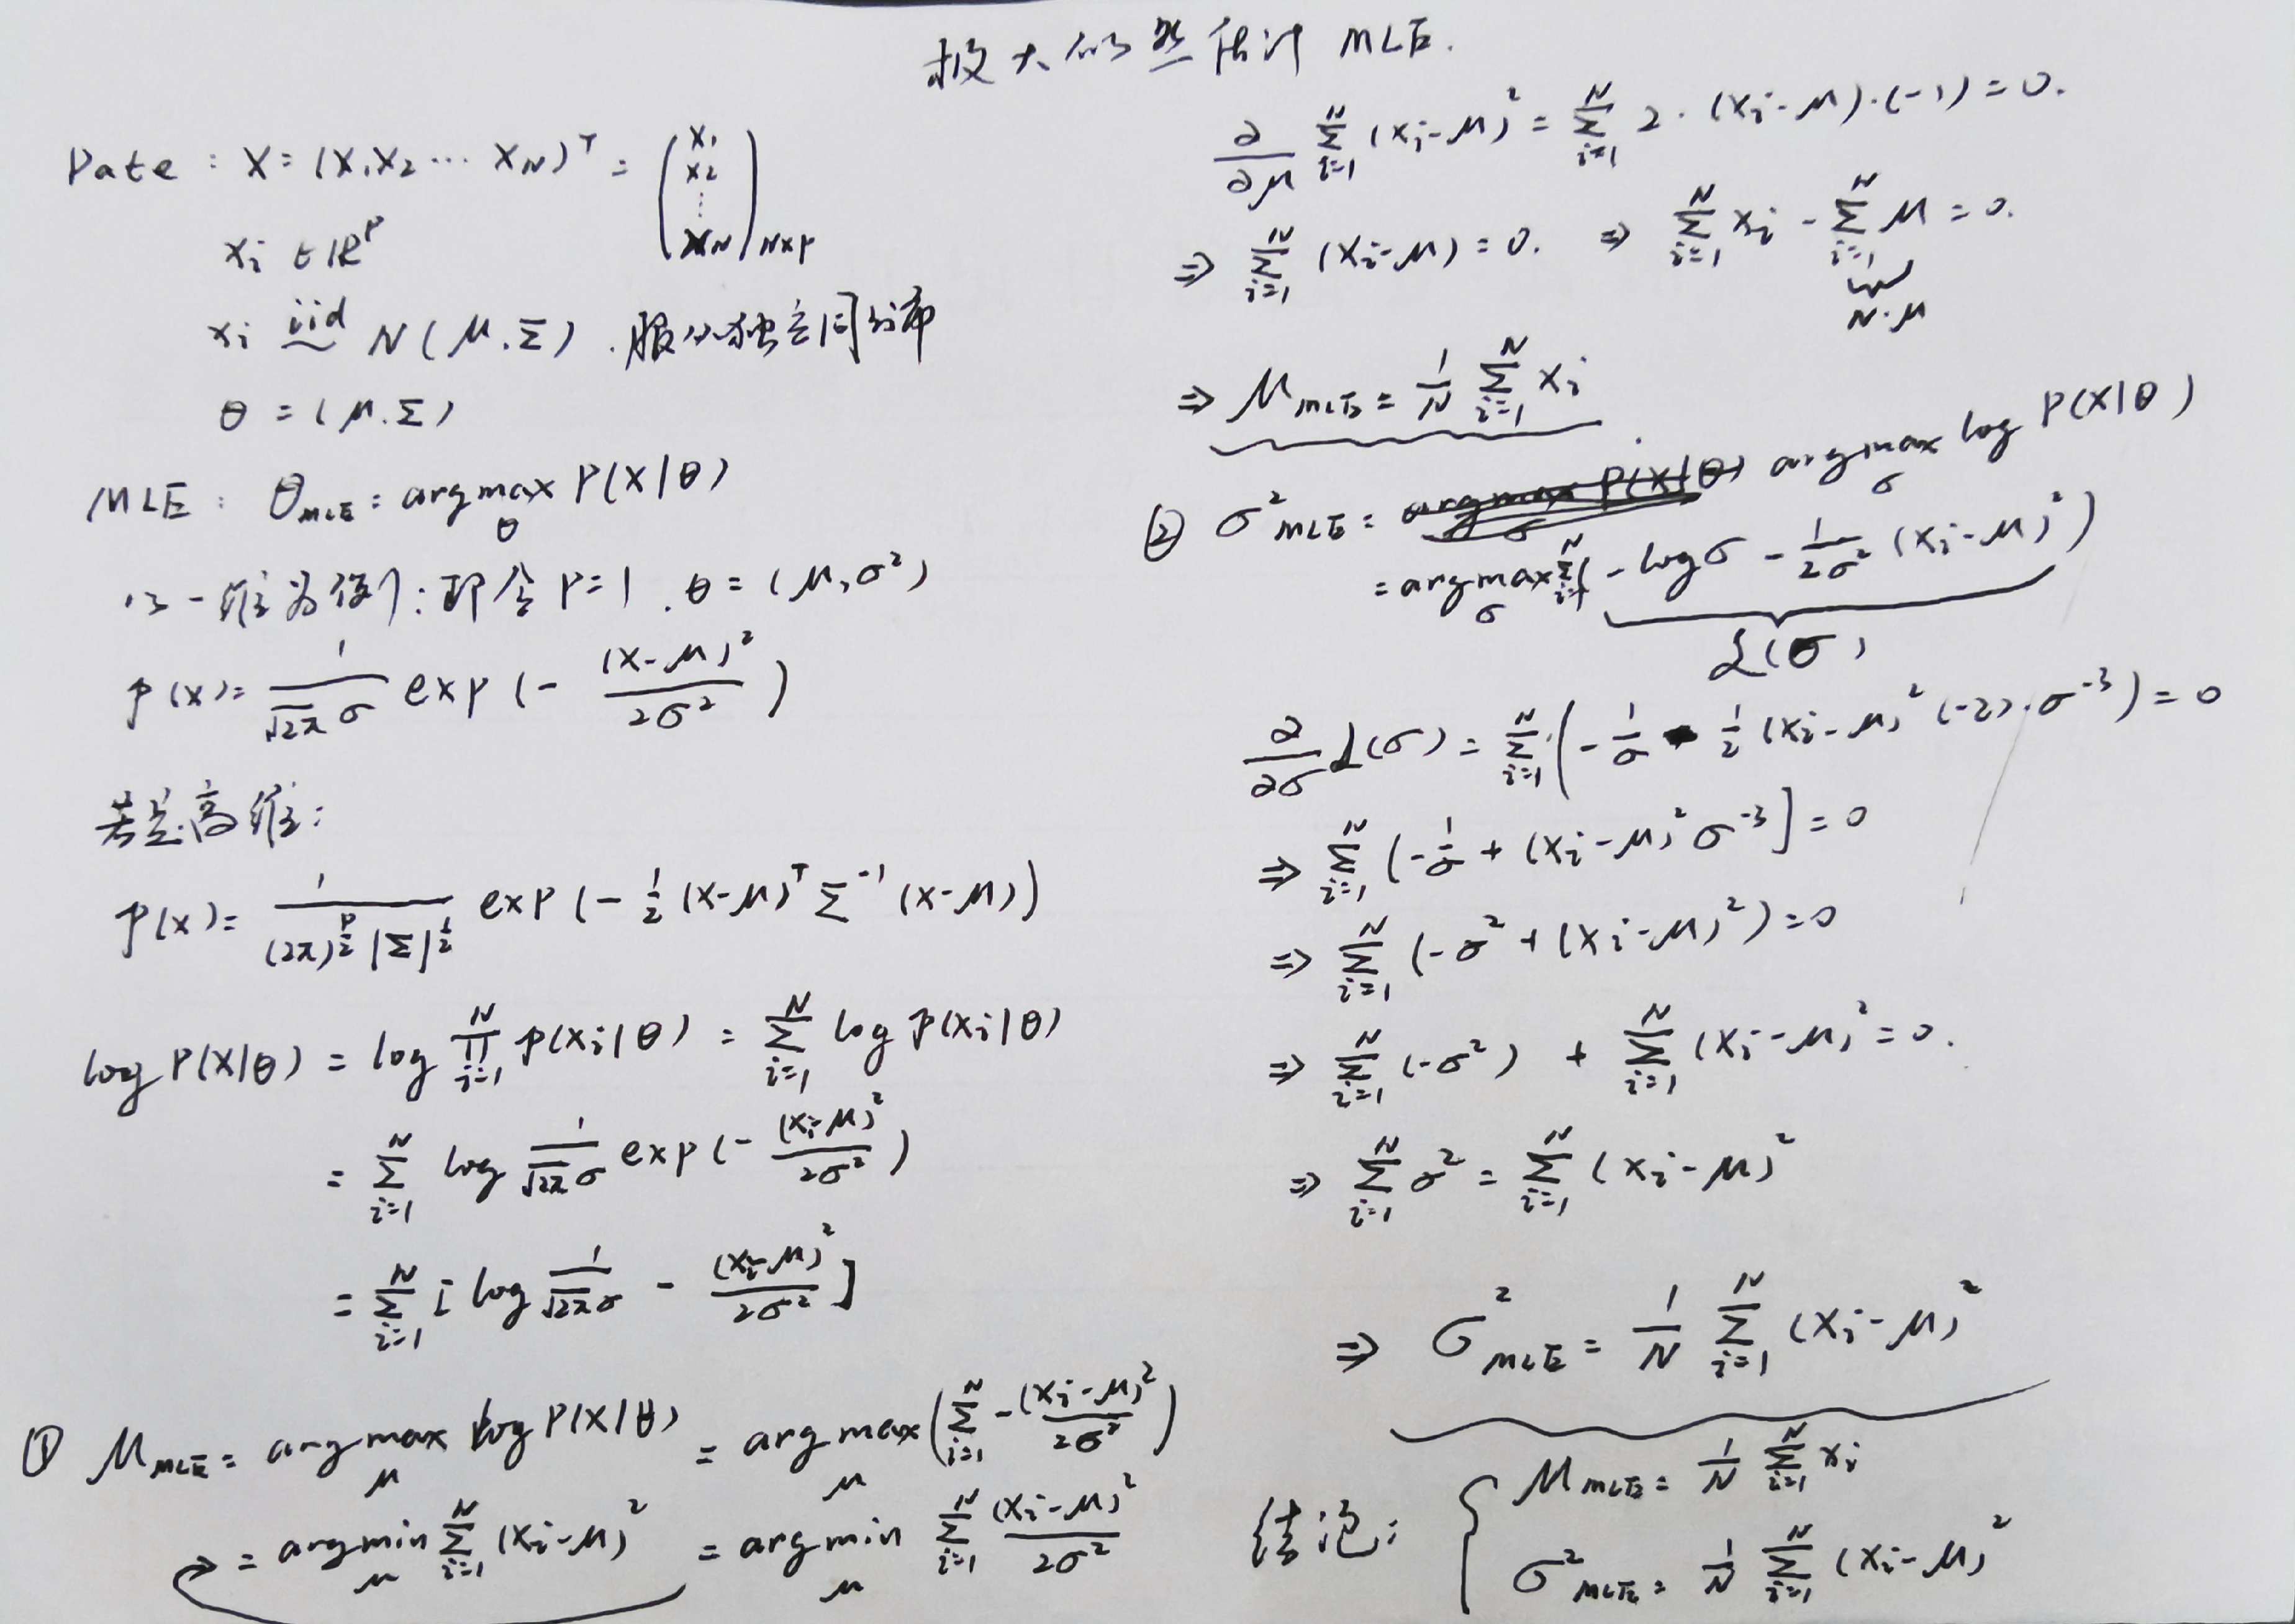 极大似然估计 MLE.
Data : X = (x₁ x₂ ⋯ x_N)ᵀ = (x₁ x₂ ⋮ x_N)_{N×p}
xᵢ ∈ ℝᵖ
xᵢ ~ⁱⁱᵈ N(μ, Σ) . 服从独立同分布
θ = (μ, Σ)
MLE : θ_MLE = argmax_θ P(X|θ)
以一维为例 : 即令 p=1 . θ = (μ, σ²)
p(x) = 1/(√(2π) σ) exp(- (x-μ)²/(2σ²))
若是高维 :
p(x) = 1/((2π)^{p/2} |Σ|^{1/2}) exp(- 1/2 (x-μ)ᵀ Σ⁻¹ (x-μ))
log P(X|θ) = log ∏_{i=1}^N p(xᵢ|θ) = ∑_{i=1}^N log p(xᵢ|θ)
= ∑_{i=1}^N log 1/(√(2π) σ) exp(- (xᵢ-μ)²/(2σ²))
= ∑_{i=1}^N [ log 1/(√(2π) σ) - (xᵢ-μ)²/(2σ²) ]
① μ_MLE = argmax_μ log P(X|θ) = argmax_μ (∑_{i=1}^N - (xᵢ-μ)²/(2σ²))
= argmin_μ ∑_{i=1}^N (xᵢ-μ)² = argmin_μ ∑_{i=1}^N (xᵢ-μ)²/(2σ²)
∂/∂μ ∑_{i=1}^N (xᵢ-μ)² = ∑_{i=1}^N 2 · (xᵢ-μ) · (-1) = 0.
⇒ ∑_{i=1}^N (xᵢ-μ) = 0. ⇒ ∑_{i=1}^N xᵢ - ∑_{i=1}^N μ = 0.
N·μ
⇒ μ_MLE = 1/N ∑_{i=1}^N xᵢ
② σ²_MLE = argmax_σ P(X|θ) argmax_σ log P(X|θ)
= argmax_σ ∑_{i=1}^N (- log σ - 1/(2σ²) (xᵢ-μ)²)
ℒ(σ)
∂/∂σ ℒ(σ) = ∑_{i=1}^N (- 1/σ - 1/2 (xᵢ-μ)² (-2) · σ⁻³) = 0
⇒ ∑_{i=1}^N (- 1/σ + (xᵢ-μ)² σ⁻³] = 0
⇒ ∑_{i=1}^N (-σ² + (xᵢ-μ)²) = 0
⇒ ∑_{i=1}^N (-σ²) + ∑_{i=1}^N (xᵢ-μ)² = 0.
⇒ ∑_{i=1}^N σ² = ∑_{i=1}^N (xᵢ-μ)²
⇒ σ²_MLE = 1/N ∑_{i=1}^N (xᵢ-μ)²
结论 : { μ_MLE = 1/N ∑_{i=1}^N xᵢ
σ²_MLE = 1/N ∑_{i=1}^N (xᵢ-μ)²